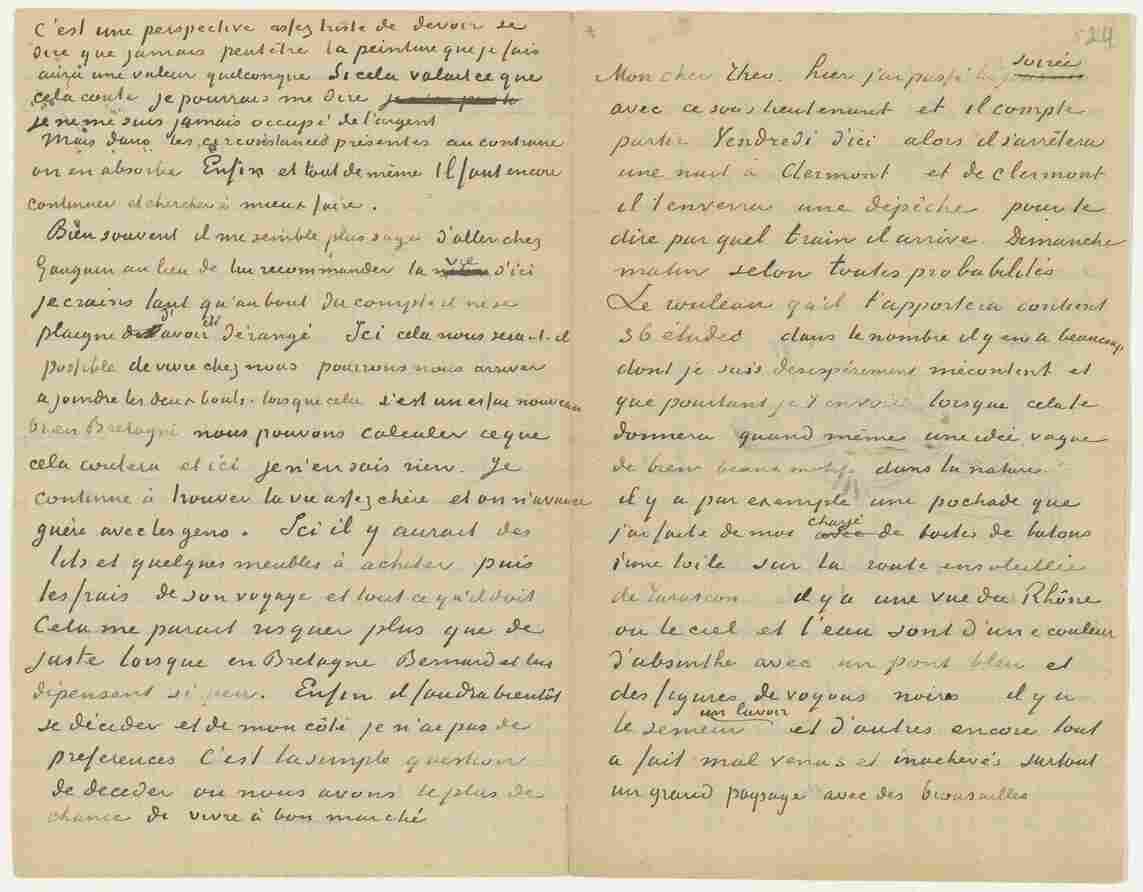 C'est une perspective assez triste de devoir se
dire que jamais peutêtre la peinture que je fais
aura une valeur quelconque. Si cela valait ce que
cela coute je pourrais me dire
je ne me suis jamais occupé de l'argent
Mais dans les circonstances présentes au contraire
on en absorbe. Enfin et tout de même Il faut encore
continuer et chercher à mieux faire.
Bien souvent il me semble plus sage d'aller chez
Gauguin au lieu de lui recommander la vie d'ici
je crains tant qu'au bout du compte il ne se
plaigne d'avoir été dérangé Ici cela nous serat-il
possible de vivre chez nous pourrons nous arriver
a joindre les deux bouts. lorsque cela c'est un essai nouveau
bien Bretagne nous pouvons calculer ce que
cela coutera et ici je n'en sais rien. Je
continue à trouver la vie assez chère et on n'avance
guère avec les gens. Ici il y aurait des
lits et quelques meubles à acheter puis
les frais de son voyage et tout ce qu'il doit
Cela me parait risquer plus que de
juste lorsque en Bretagne Bernard et lui
dépensent si peu. Enfin il faudra bientôt
se décider et de mon côté je n'ai pas de
preferences C'est la simple question
de decider ou nous avons le plus de
chance de vivre à bon marché
24
Mon cher Theo. hier j'ai passé la soirée
avec ce sous lieutenant et il compte
partir Vendredi d'ici alors il s'arrêtera
une nuit à Clermont et de Clermont
il t'enverra une dépêche pour te
dire par quel train il arrive. Dimanche
matin selon toutes probabilités
Le rouleau qu'il t'apportera contient
36 études dans le nombre il y en a beaucoup
dont je suis desespérément mécontent et
que pourtant je t'envoie lorsque cela te
donnera quand même une idée vague
de bien beaux motifs dans la nature.
il y a par exemple une pochade que
j'ai faite de moi chargé de boites de batons
d'une toile sur la route ensoleillée
de Tarascon il y a une vue du Rhône
ou le ciel et l'eau sont d'une couleur
d'absinthe avec un pont bleu et
des figures de voyous noires il y a
le semeur un lavoir et d'autres encore tout
a fait mal venus et inachevés surtout
un grand paysage avec des brousailles